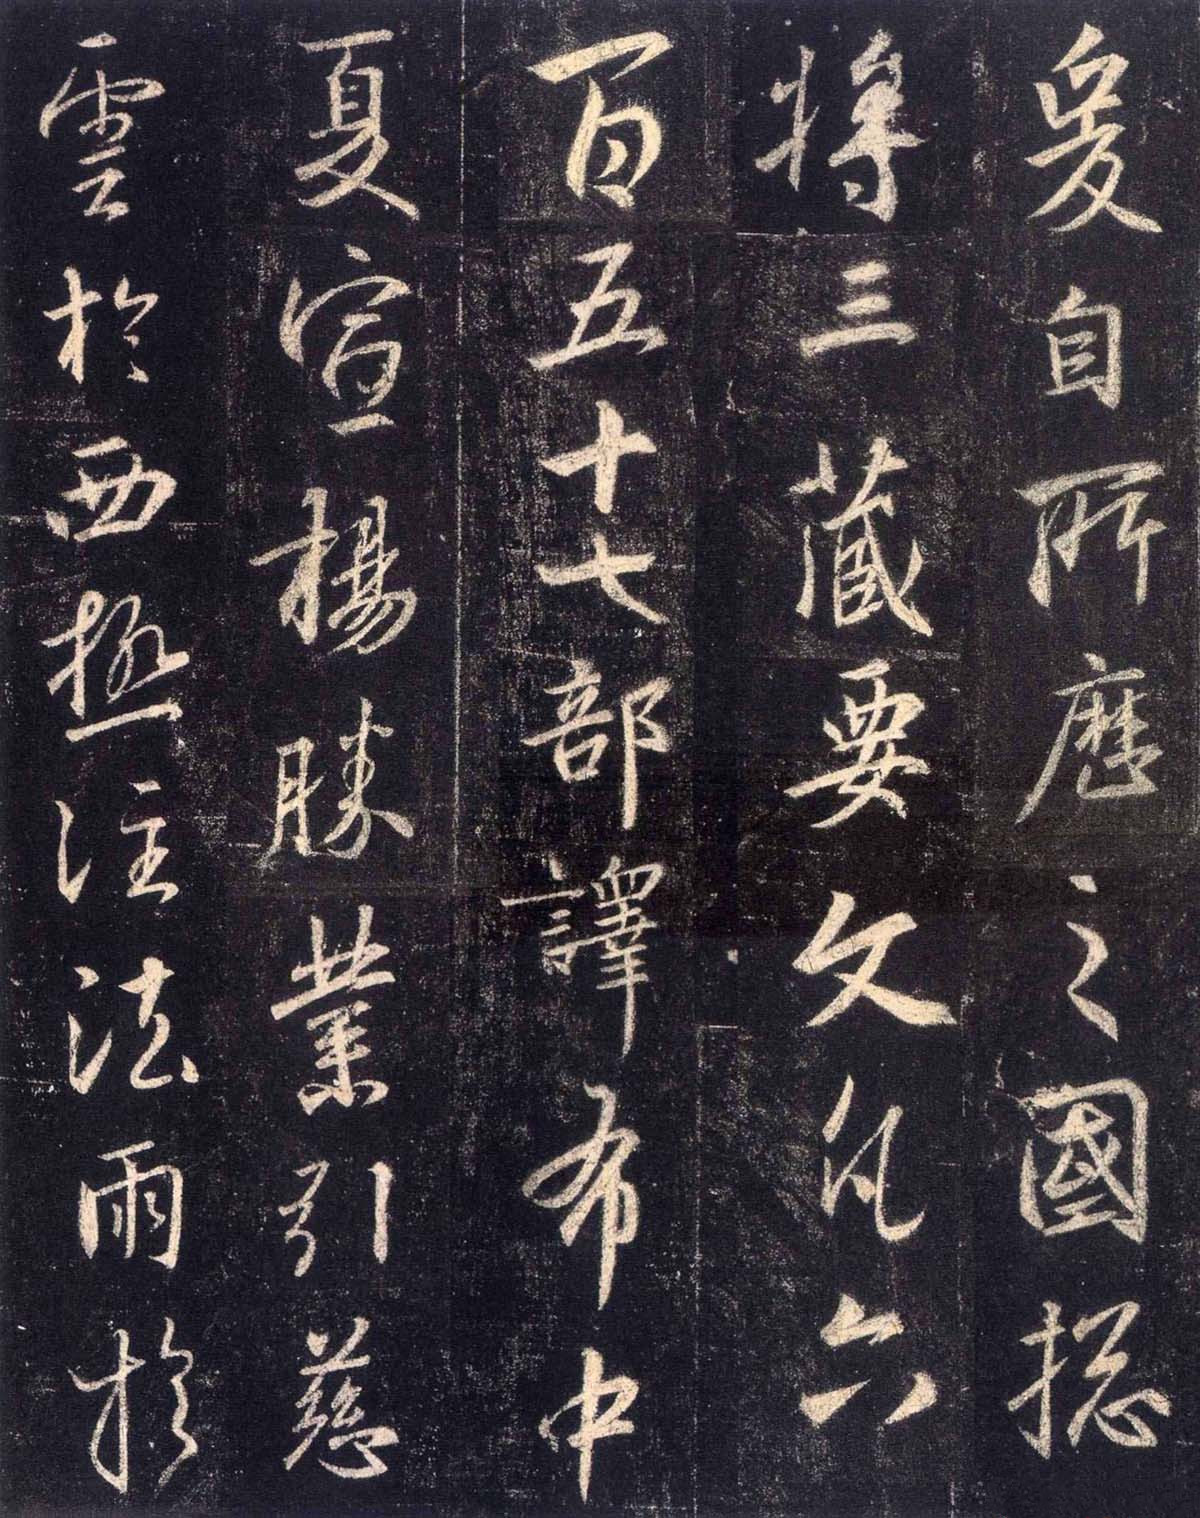 爰自所歷之國捴
將三藏要文凡六
百五十七部譯布中
夏宣揚勝業引慈
雲於西極注法雨於